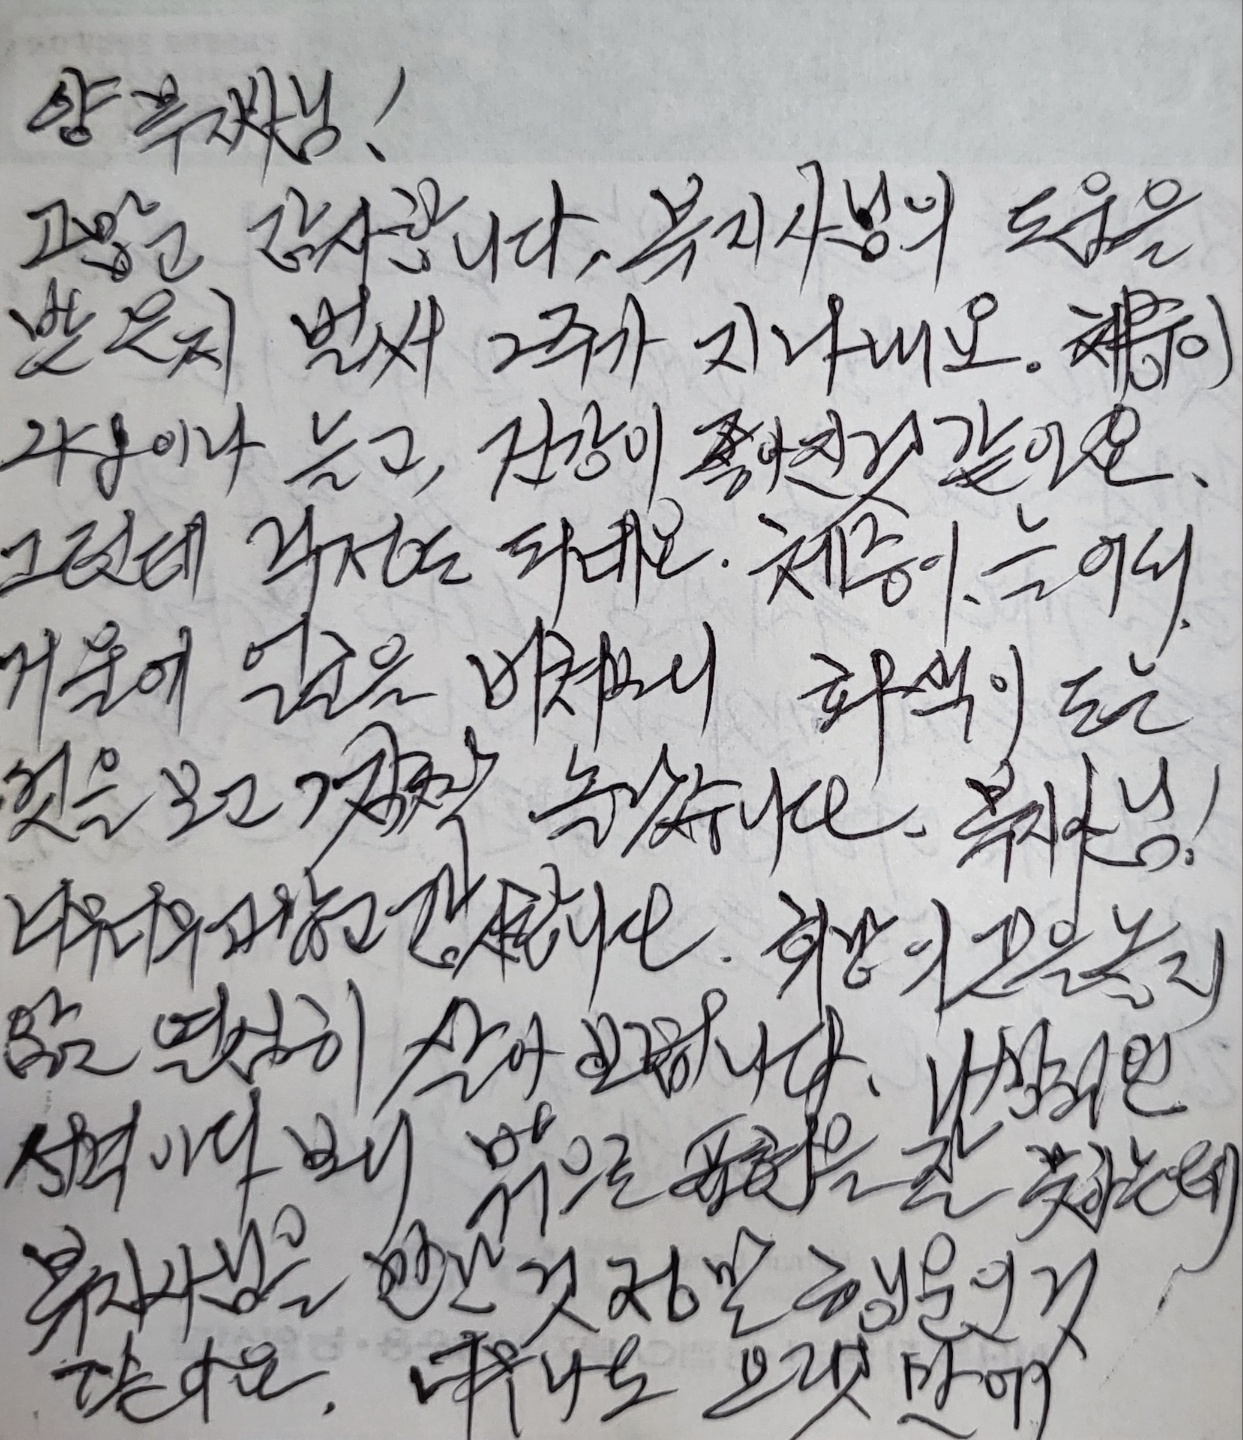 양 복지사님!
고맙고 감사합니다. 복지사님의 도움을
받은지 벌써 2주가 지나내요. 체중이
늘고, 건강이 좋아진것 같아요.
그런데 걱정도 되네요. 체중이 늘어서.
거울에 얼굴을 비쳐보니 화색이 도는
것을 보고 깜짝 놀랐습니다. 복지사님!
너무너무 고맙고 감사합니다. 희망의 끈을 놓지
않고 열심히 살아 보렵니다. 내성적인
성격이다 보니 밖으로 표현을 잘 못하는데
복지사님을 만난 것 정말 행운인것
같아요. 너무나도 오랫만에